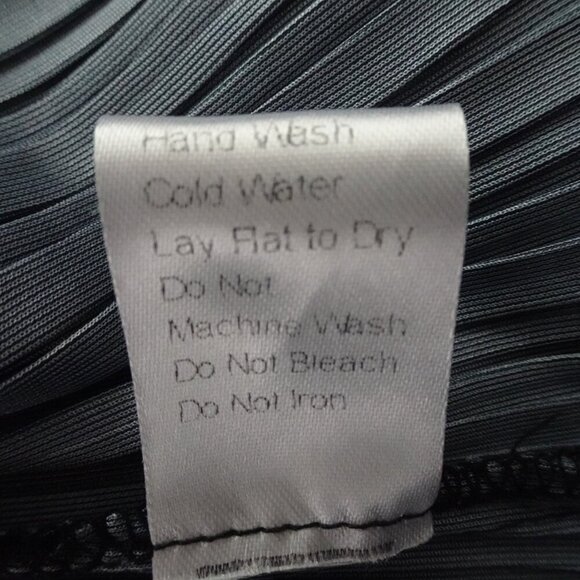 Hand Wash
Cold Water
Lay Flat to Dry
Do Not
Machine Wash
Do Not Bleach
Do Not Iron